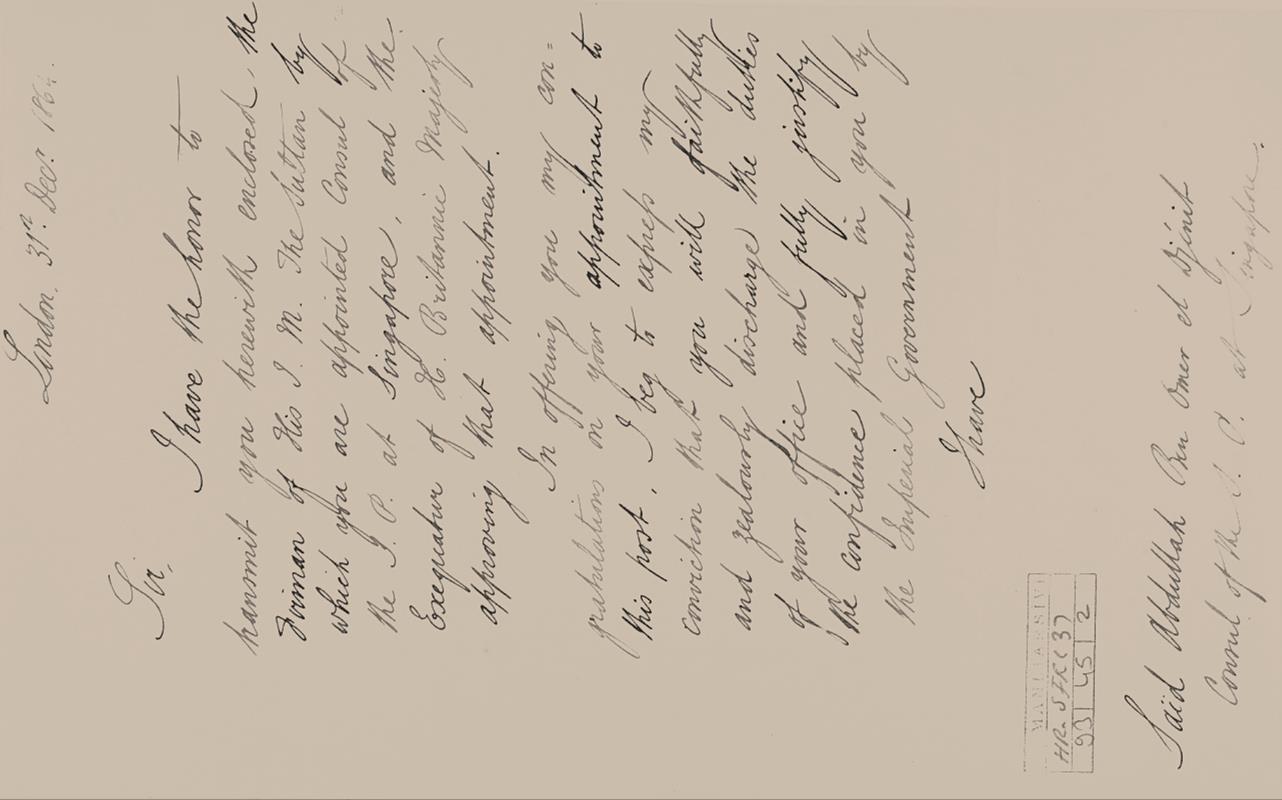 London. 31st Decr. 186
Sir,
I have the honor to
transmit you herewith enclosed, the
Firman of His I. M. The Sultan by
which you are appointed Consul of
the I. P. at Singapore, and the
Exequatur of H. Britannic Majesty
approving that appointment.
In offering you my con=
gratulations on your appointment to
this post, I beg to express my
conviction that you will faithfully
and zealously discharge the duties
of your office and fully justify
the confidence placed in you by
the Imperial Government
I have
HR. SFR (3)
93 | 45 | 2
Saïd Abdullah Ben Omer el Djénit
Consul of the S. P. at Singapore.